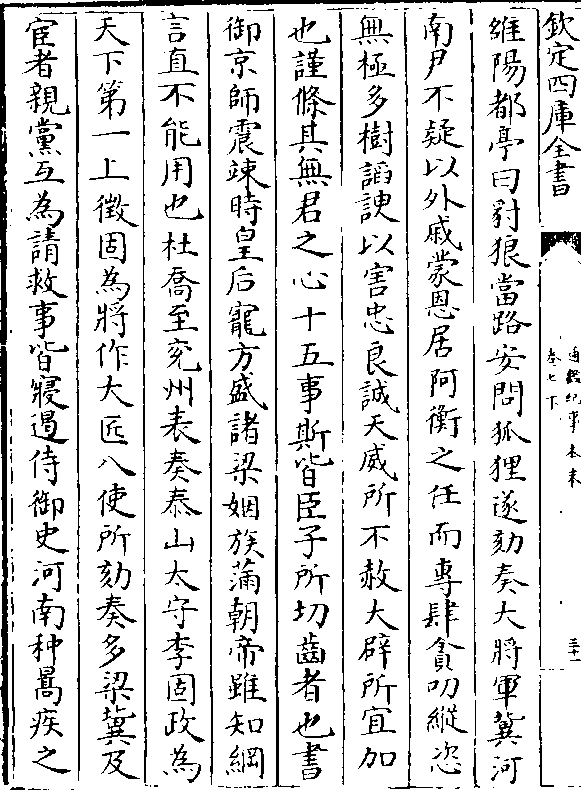 欽定四庫全書
通鑑紀事本末
卷七下
雒陽都亭曰豺狼當路安問狐狸遂劾奏大將軍冀河
南尹不疑以外戚蒙恩居阿衡之任而專肆貪叨縱恣
無極多樹諂諛以害忠良誠天威所不赦大辟所宜加
也謹條其無君之心十五事斯皆臣子所切齒者也書
御京師震竦時皇后寵方盛諸梁姻族滿朝帝雖知綱
言直不能用也杜喬至兖州表奏泰山太守李固政為
天下第一上徵固為將作大匠八使所劾奏多梁冀及
宦者親黨互為請救事皆寢遏侍御史河南种暠疾之